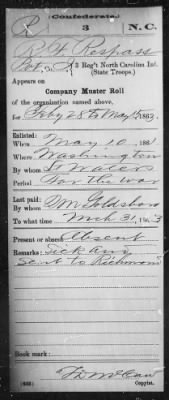 (Confederate.)
R 3 N.C.
R F Respass
Pvt, Co. I, 3 Reg't North Carolina Inf.
(State Troops.)
Appears on
Company Muster Roll
of the organization named above,
for Feby 28 to May 1, 1863.
Enlisted:
When May 10, 1861
Where Washington
By whom Waters
Period For the war
Last paid:
By whom Goldsboro
To what time Mch 31, 1863
Present or absent Absent
Remarks: Sick Army
Sent to Richmond
Book mark:
(642)
Copyist.